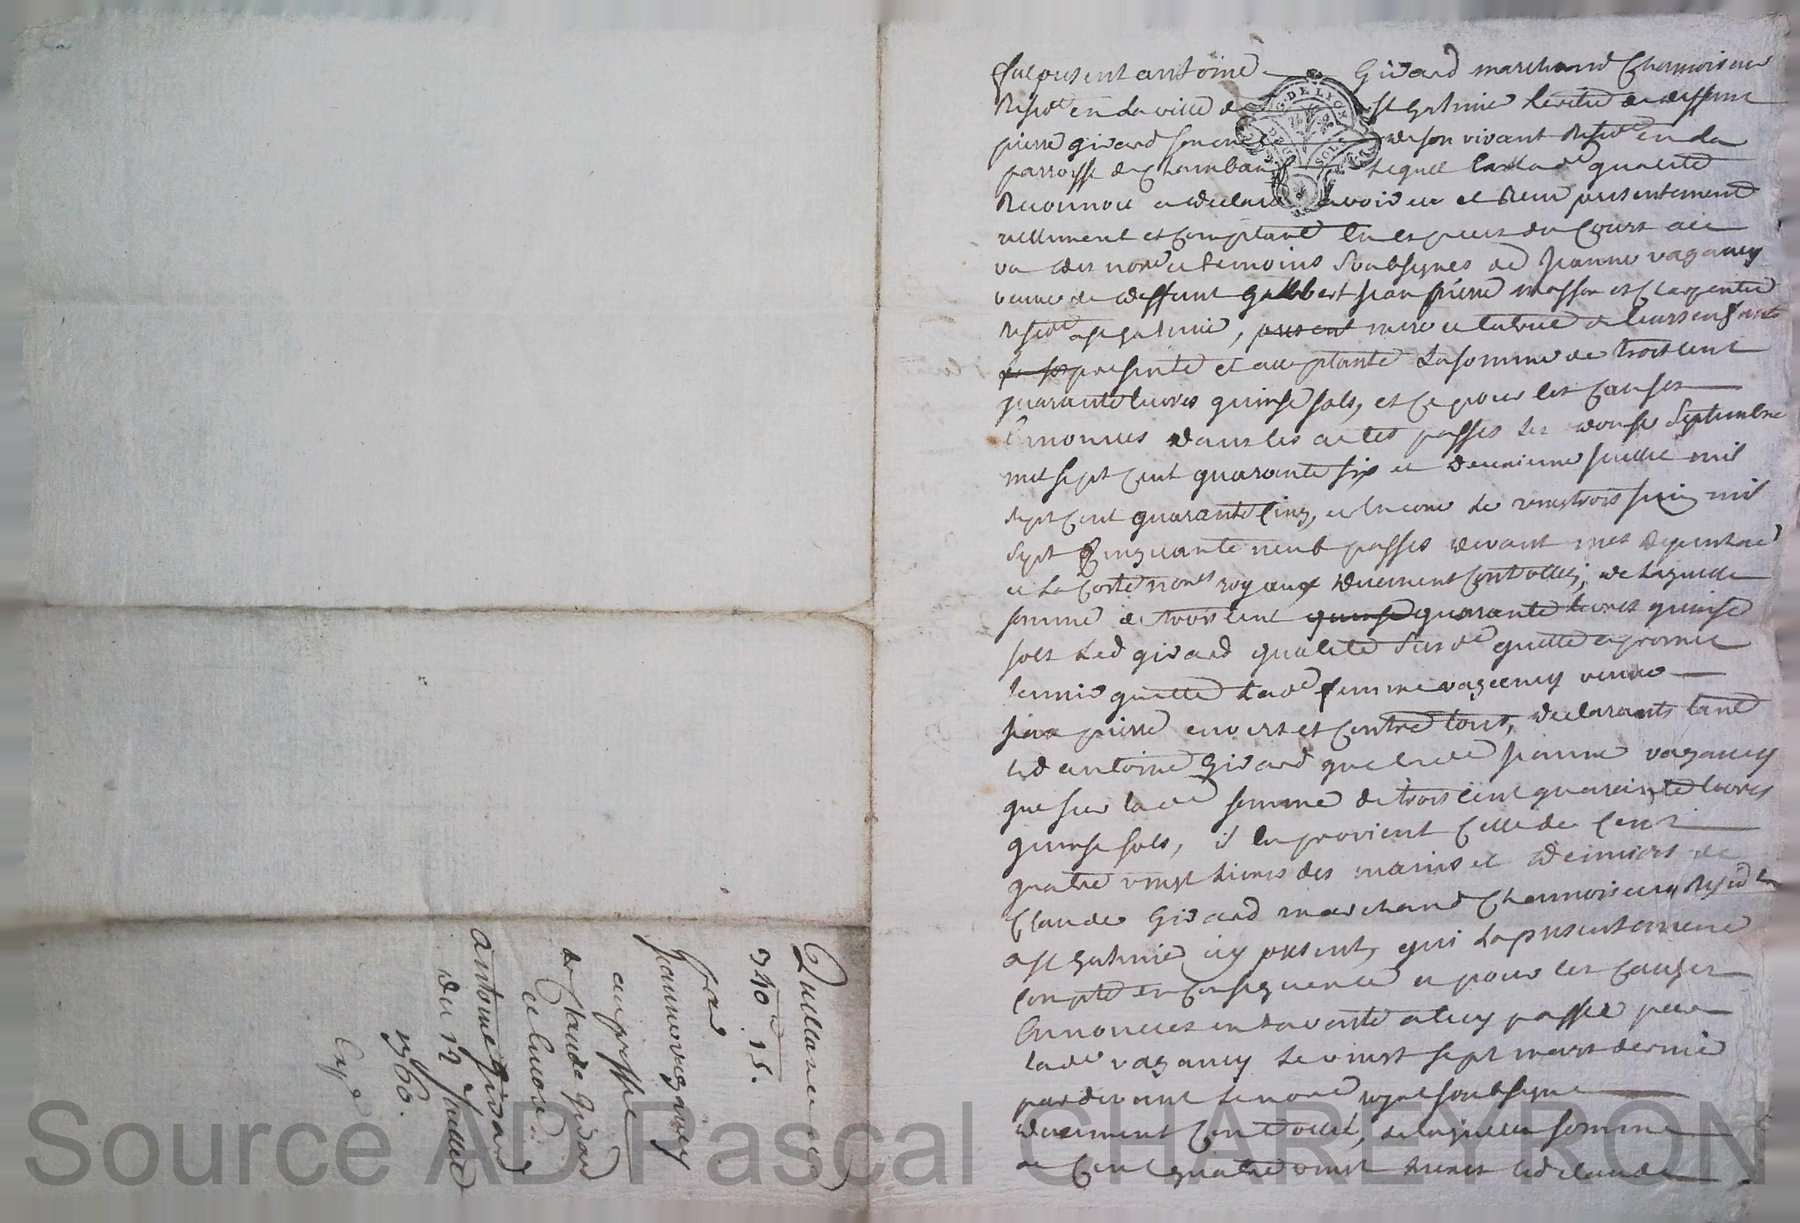 fut present antoine Girard marchand Chamoiseur
Resid.t en la ville de st galmier heritier de deffunt
pierre girard son oncle de son vivant Resid.t en la
parroisse de Chambeuf lequel en lad.e qualité
Reconnoit et declare avoir eu et Receu presentement
réellement et comptant en especes du Cours au
vu des no.re et temoins Soubsignés de jeanne vaganay
veuve de deffunt jean pierre masson et Charpentier
Resid.t a st galmier, present mere et tutrice de leurs enfants
presente et acceptante La somme de trois cent
quarante livres quinse sols, et ce pour les Causes
Ennoncées dans les actes passés les douse Septembre
mil sept Cent quarante six et juillet mil
sept Cent quarante Cinq, et encore le vingt trois juin mil
sept Cinquante neuf passés devant mes
et La Coste no.res royaux duement Controllés, de laquelle
somme de trois Cent quinse quarante livres quinse
sols Led girard qualité Sus d.e quitte et promet
tenir quitte Lad.e femme vaganay veuve
jean pierre envers et Contre tous, declarants tant
led antoine Girard que lad.e jeanne vaganay
que sur lad.e somme de trois cent quarante livres
quinse sols, il en provient Celle de Cent
quatre vingt Livres des mains et deniers de
Claude Girard marchand Chamoiseur Resid.t
a st galmier icy present, qui La presentement
Compté en Consequence et pour les Causes
Ennoncées en la vente a luy passée par
lad.e vaganay Le vingt sept mars dernier
pardevant Le no.re royal soubsigné
duement Controllé, de laquelle somme
de Cent quatre vingt Livres led Claude
G. DE LYON
SOLS
Quittance de
340 # 15 s.
par
Jeanne vaganay
au proffit
de Claude Girard
et encore
antoine Girard
du 12 Juillet
1760.
Exp.e
Source AD Pascal CHAREYRON